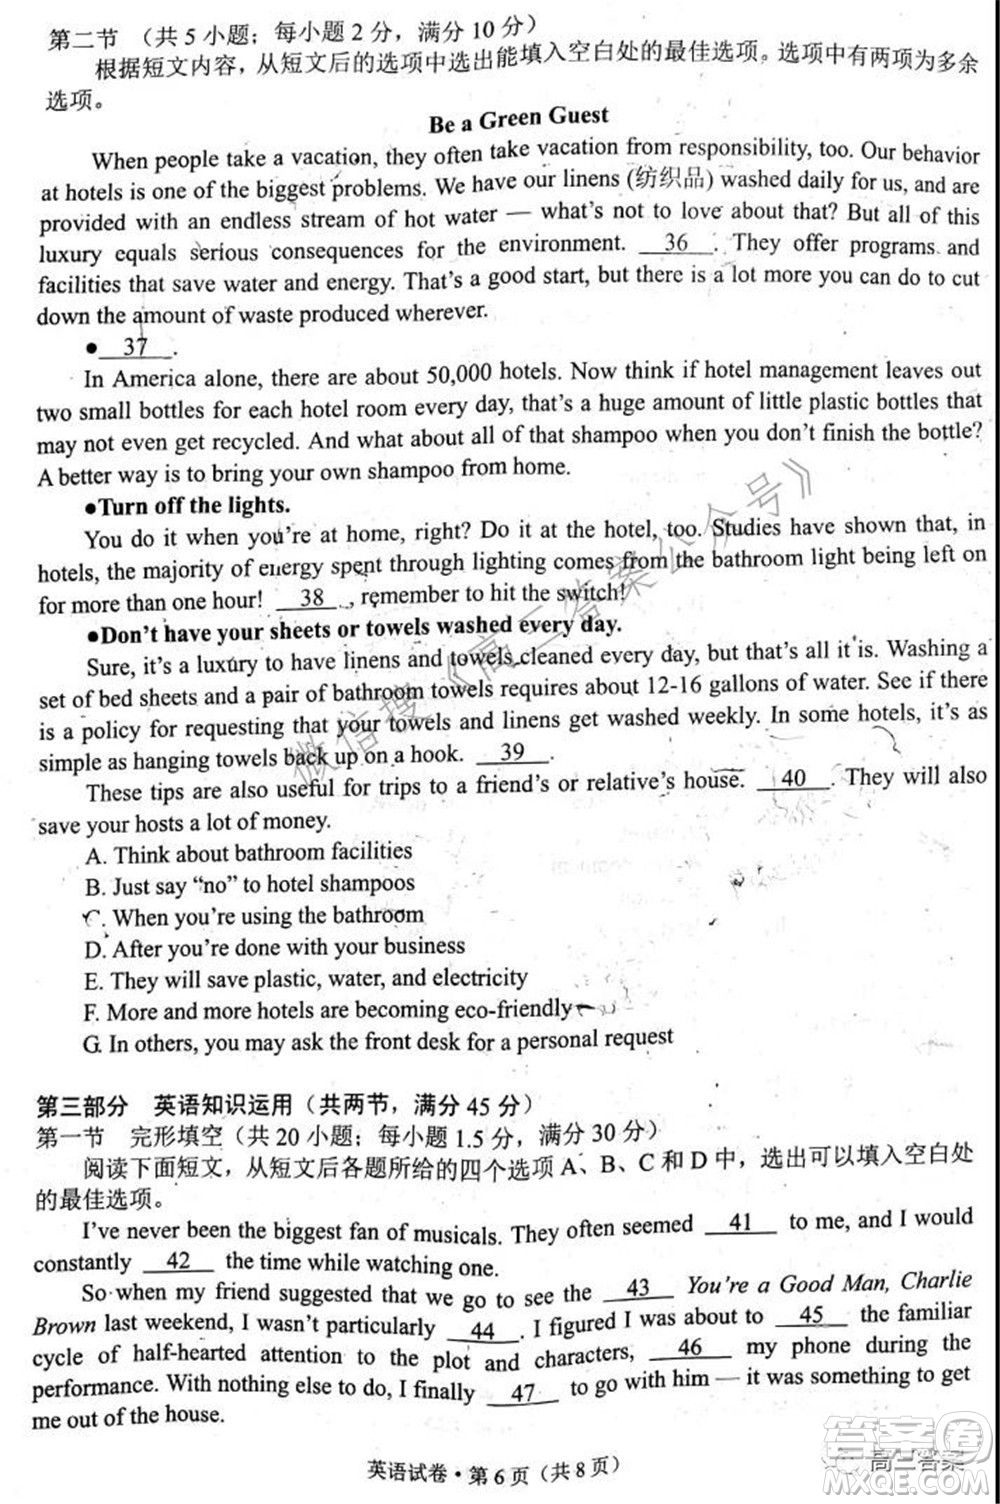 第二节 （共 5 小题；每小题 2 分，满分 10 分）
根据短文内容，从短文后的选项中选出能填入空白处的最佳选项。选项中有两项为多余
选项。
Be a Green Guest
When people take a vacation, they often take vacation from responsibility, too. Our behavior
at hotels is one of the biggest problems. We have our linens (纺织品) washed daily for us, and are
provided with an endless stream of hot water — what's not to love about that? But all of this
luxury equals serious consequences for the environment. 36 . They offer programs and
facilities that save water and energy. That's a good start, but there is a lot more you can do to cut
down the amount of waste produced wherever.
● 37 .
In America alone, there are about 50,000 hotels. Now think if hotel management leaves out
two small bottles for each hotel room every day, that's a huge amount of little plastic bottles that
may not even get recycled. And what about all of that shampoo when you don't finish the bottle?
A better way is to bring your own shampoo from home.
●Turn off the lights.
You do it when you're at home, right? Do it at the hotel, too. Studies have shown that, in
hotels, the majority of energy spent through lighting comes from the bathroom light being left on
for more than one hour! 38 , remember to hit the switch!
●Don't have your sheets or towels washed every day.
Sure, it's a luxury to have linens and towels cleaned every day, but that's all it is. Washing a
set of bed sheets and a pair of bathroom towels requires about 12-16 gallons of water. See if there
is a policy for requesting that your towels and linens get washed weekly. In some hotels, it's as
simple as hanging towels back up on a hook. 39 .
These tips are also useful for trips to a friend's or relative's house. 40 . They will also
save your hosts a lot of money.
A. Think about bathroom facilities
B. Just say "no" to hotel shampoos
C. When you're using the bathroom
D. After you're done with your business
E. They will save plastic, water, and electricity
F. More and more hotels are becoming eco-friendly
G. In others, you may ask the front desk for a personal request
第三部分 英语知识运用（共两节，满分 45 分）
第一节 完形填空（共 20 小题；每小题 1.5 分，满分 30 分）
阅读下面短文，从短文后各题所给的四个选项 A、B、C 和 D 中，选出可以填入空白处
的最佳选项。
I've never been the biggest fan of musicals. They often seemed 41 to me, and I would
constantly 42 the time while watching one.
So when my friend suggested that we go to see the 43 You're a Good Man, Charlie
Brown last weekend, I wasn't particularly 44 . I figured I was about to 45 the familiar
cycle of half-hearted attention to the plot and characters, 46 my phone during the
performance. With nothing else to do, I finally 47 to go with him — it was something to get
me out of the house.
英语试卷·第 6 页（共 8 页）
微信搜《高三答案公众号》
高三答案
答案圈
MXQE.COM